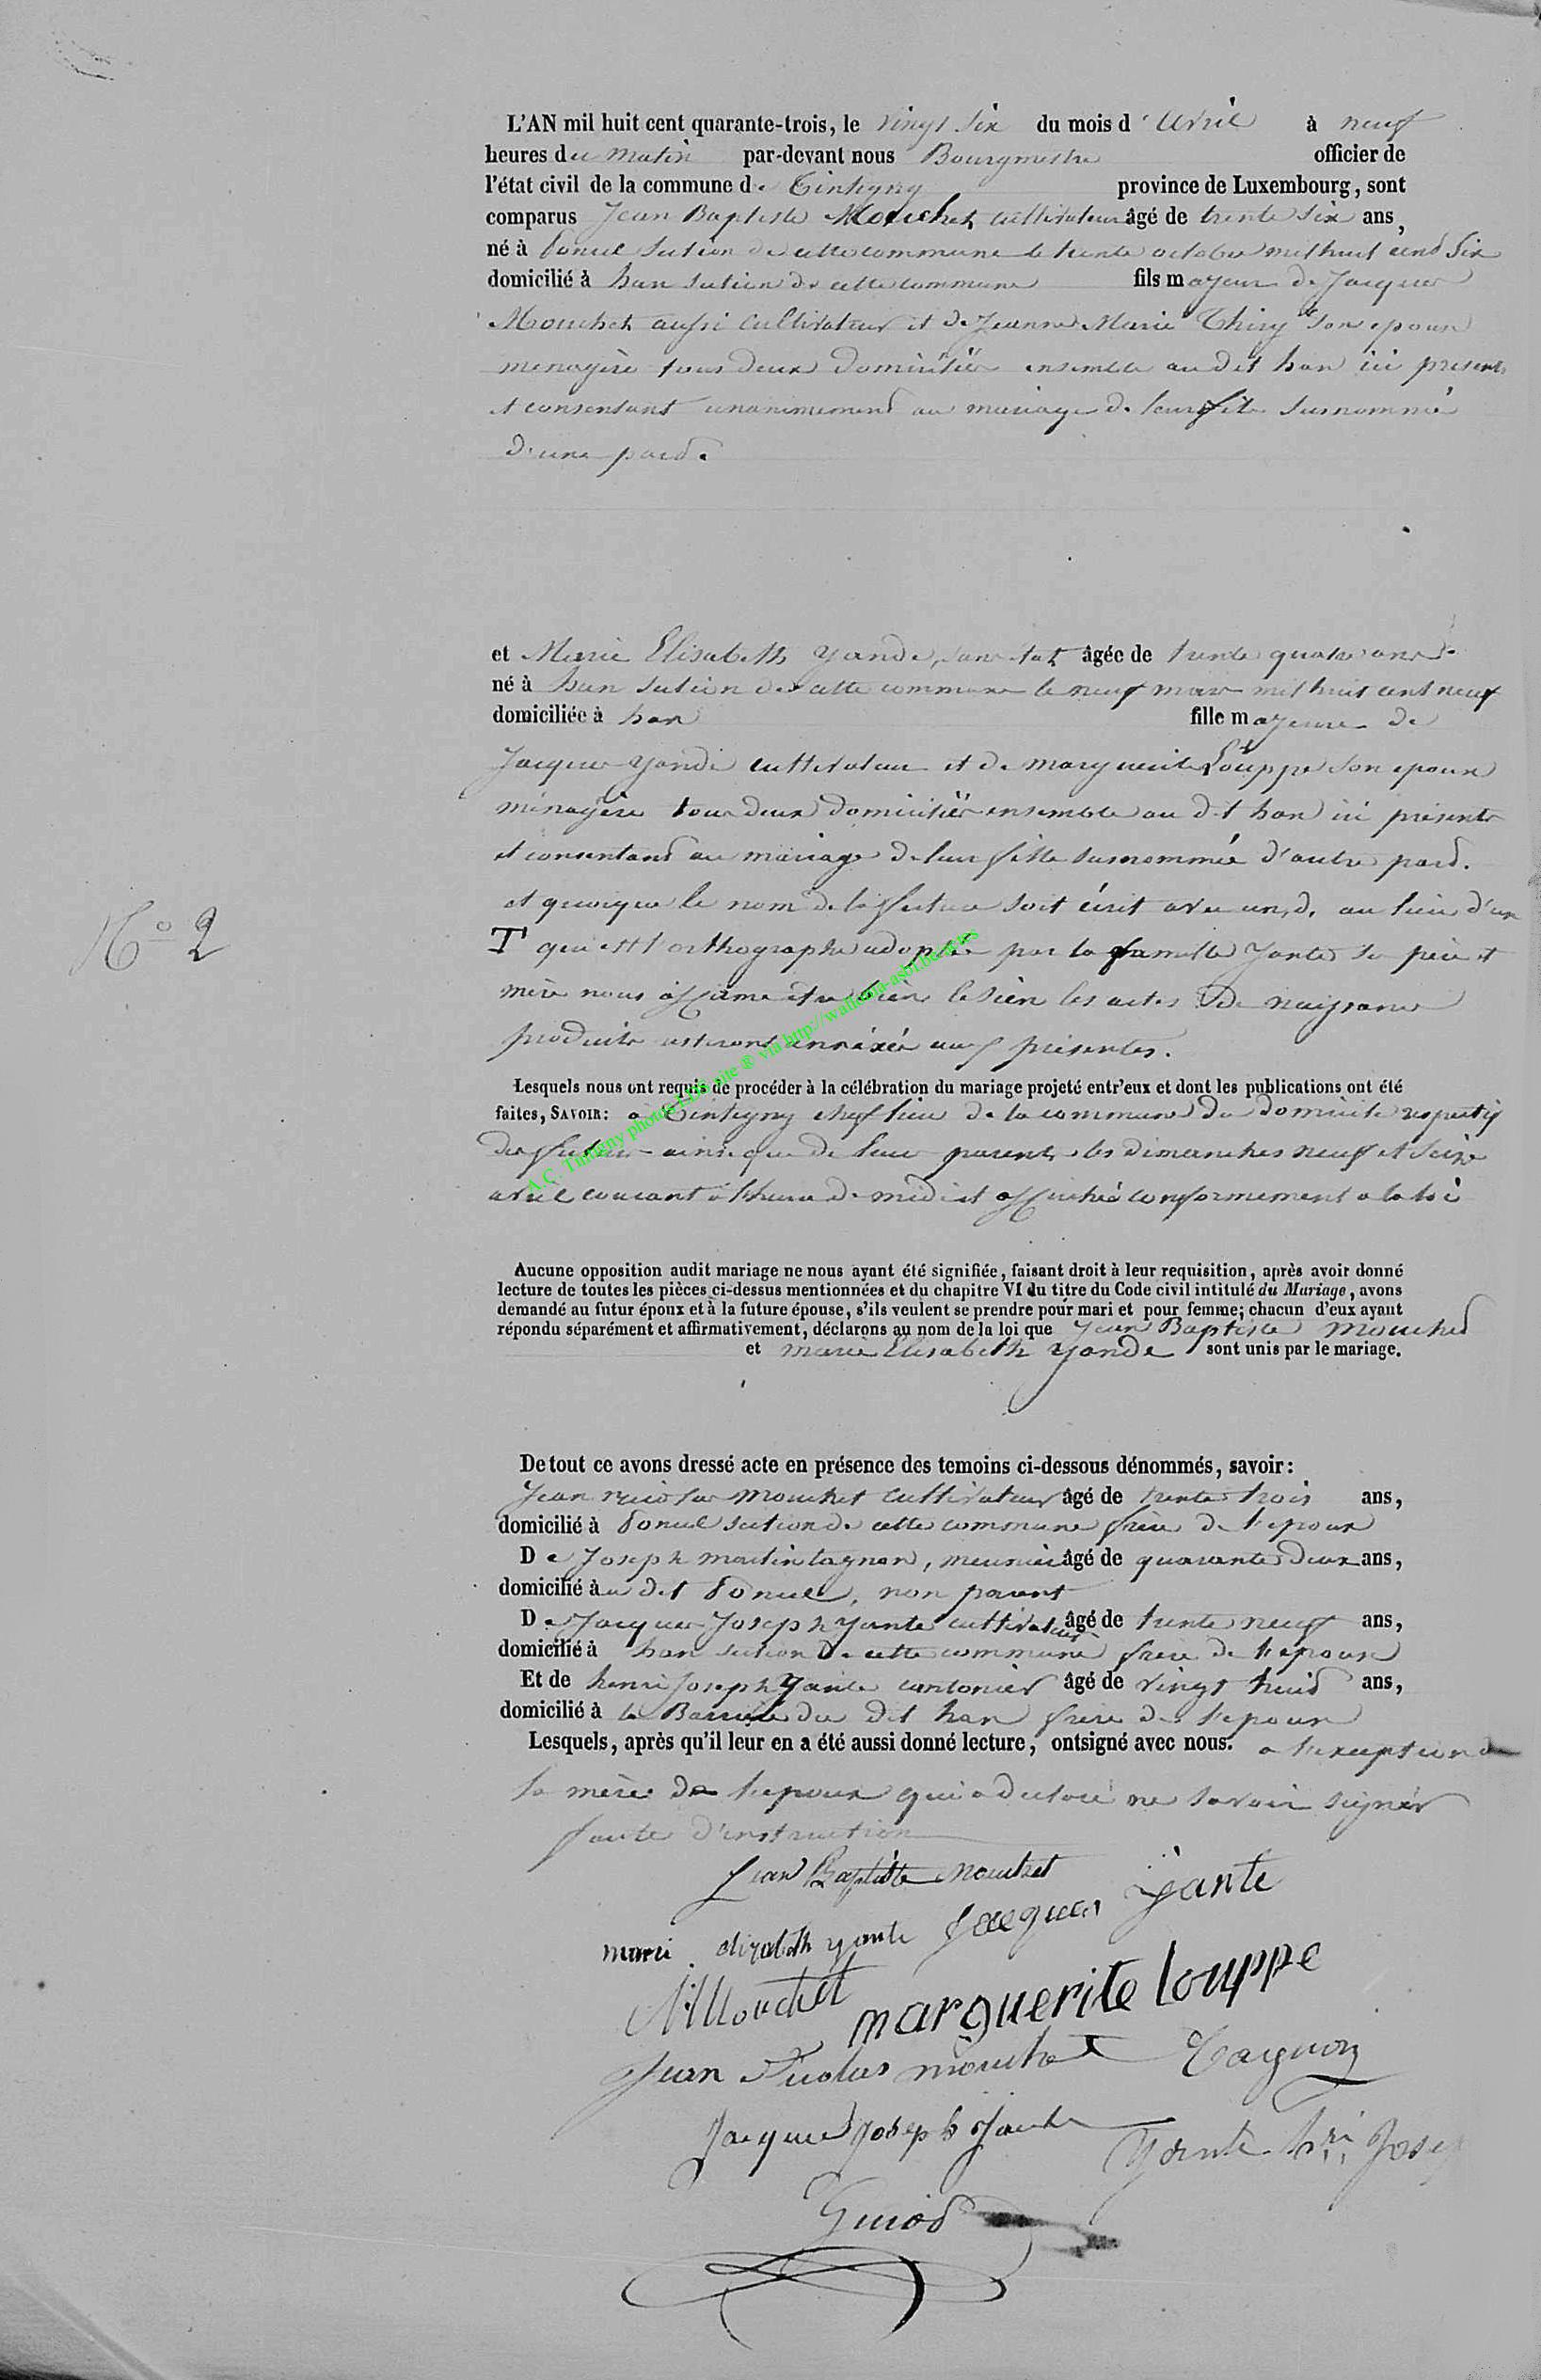 L'AN mil huit cent quarante-trois, le vingt six du mois d'avril à neuf
heures du matin par-devant nous Bourgmestre officier de
l'état civil de la commune de Tintigny province de Luxembourg, sont
comparus Jean Baptiste Mouchet, cultivateur âgé de trente six ans,
né à section de cette commune le trente octobre mil huit cent six
domicilié à han section de cette commune fils majeur de Jacques
Mouchet aussi cultivateur et de Jeanne Marie Thiry son epouse
menagère tous deux domiciliés ensemble au dit han ici présents
et consentant unanimement au mariage de leur fils surnommé
d'une part.
et Marie Elisabeth Yande, sans état âgée de trente quatre ans
né à han section de cette commune le neuf mars mil huit cent neuf
domiciliée à han fille majeure de
Jacques Yande cultivateur et de marguerite Louppe son epouse
ménagère tous deux domiciliés ensemble au dit han ici présents
et consentant au mariage de leur fille surnommée d'autre part.
et quoique le nom de la future soit écrit avec un, d, au lieu d'un
T qui est l'orthographe adoptée par la famille Yante ses père et
mère nous affirme être bien le sien les actes de naissance
produits resteront annéxés aux présentes.
Lesquels nous ont requis de procéder à la célébration du mariage projeté entr'eux et dont les publications ont été
faites, SAVOIR: à Tintigny chef lieu de la commune du domicile respectif
des futurs ainsi que de leurs parents les dimanches neuf et seize
avril courant à l'heure de midi et affichés conformement a la loi
Aucune opposition audit mariage ne nous ayant été signifiée, faisant droit à leur requisition, après avoir donné
lecture de toutes les pièces ci-dessus mentionnées et du chapitre VI du titre du Code civil intitulé du Mariage, avons
demandé au futur époux et à la future épouse, s'ils veulent se prendre pour mari et pour femme; chacun d'eux ayant
répondu séparément et affirmativement, déclarons au nom de la loi que Jean Baptiste Mouchet
et marie Elisabeth Yande sont unis par le mariage.
De tout ce avons dressé acte en présence des temoins ci-dessous dénommés, savoir:
Jean nicolas mouchet cultivateur âgé de trente trois ans,
domicilié à section de cette commune frère de l'epoux
De Joseph martin tagnon, meunier âgé de quarante deux ans,
domicilié au dit non parent
De Jacques Joseph Yante cultivateur âgé de trente neuf ans,
domicilié à han section de cette commune frère de l'epouse
Et de henri Joseph Yante cantonier âgé de vingt huit ans,
domicilié à la Barrière du dit han frère de l'epouse
Lesquels, après qu'il leur en a été aussi donné lecture, ont signé avec nous. a l'exception de
la mère de l'epoux qui a declaré ne savoir signer
faute d'instruction
N° 2
Jean Baptiste Mouchet
marie elizabeth yante Jacques Yante
Mouchet marguerite louppe
Jean Nicolas mouchet Tagnon
Jacques Joseph Yante Yante hri Josep
Guiot
A.C. Tintigny photos LES site ® via http://wallonia-asbl.be